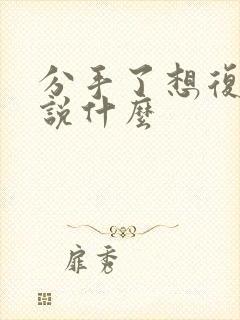 分手了想復
說什麼
扉秀